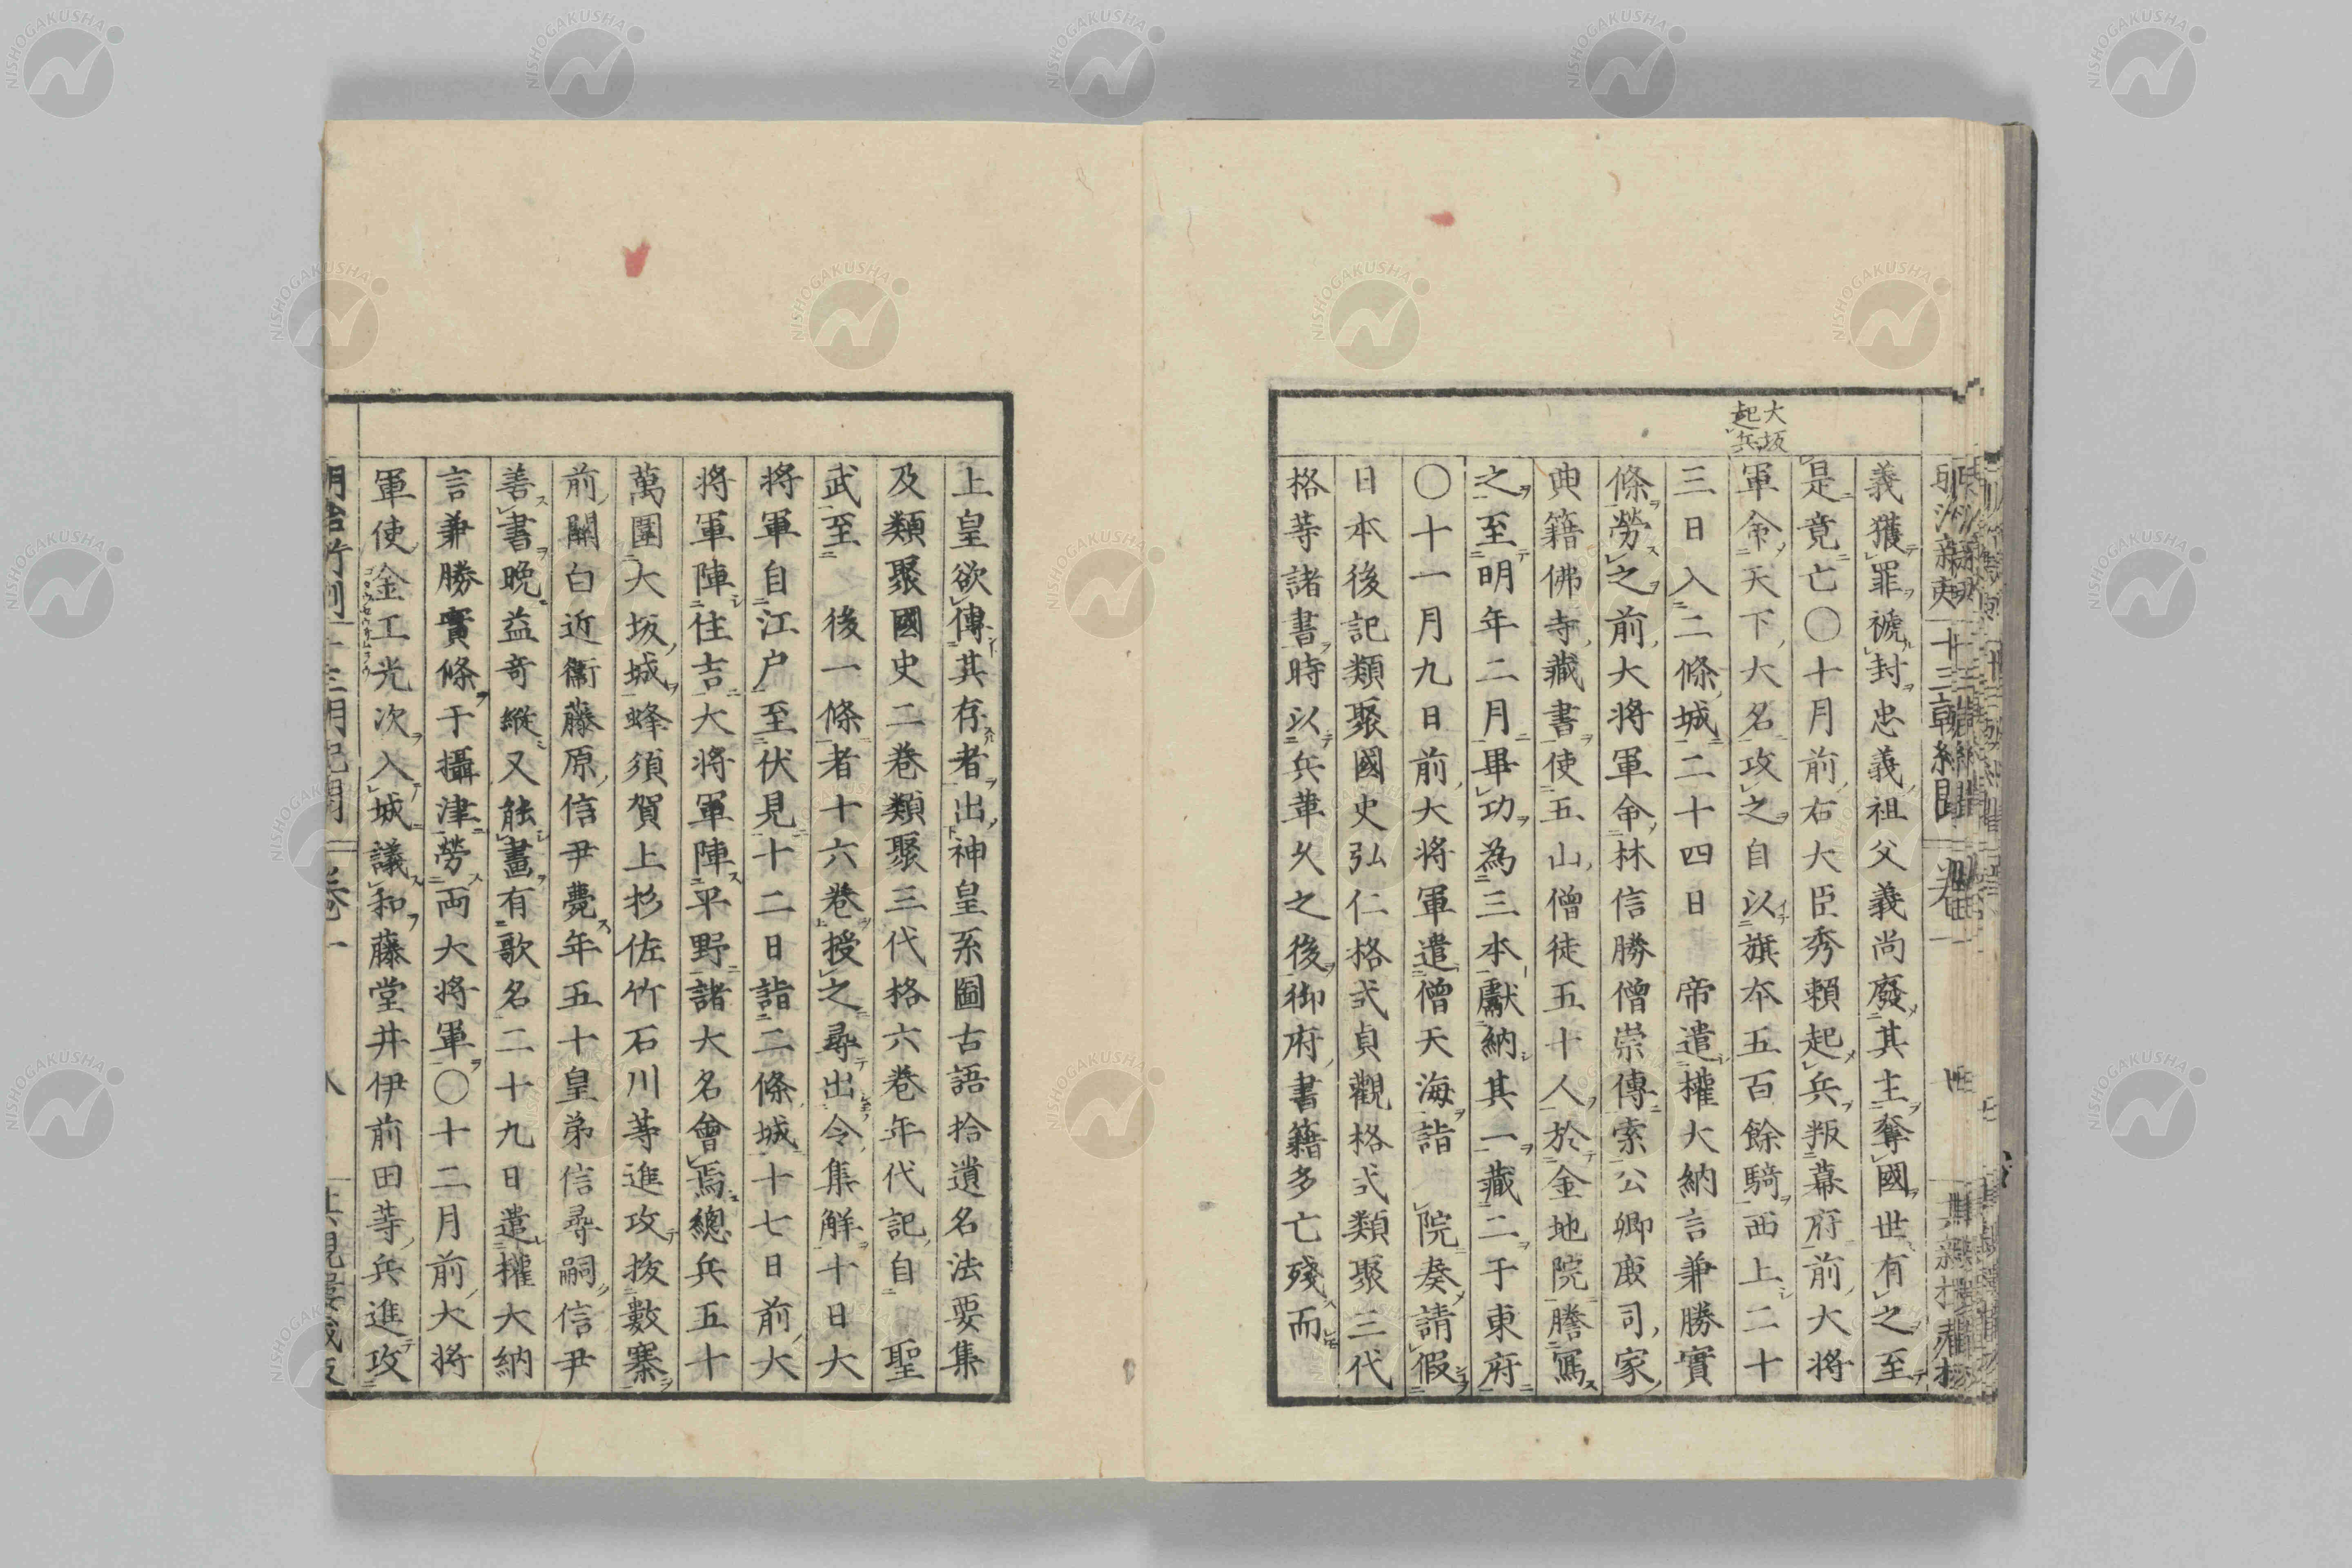 大坂
起兵
義獲罪褫封忠義祖父義尚廢其主奪國世有之至
是竟亡〇十月前右大臣秀賴起兵叛幕府前大將
軍命天下大名攻之自以旗本五百餘騎西上二十
三日入二條城二十四日 帝遣權大納言兼勝實
條勞之前大將軍命林信勝僧崇傳索公卿庶司家
典籍佛寺藏書使五山僧徒五十人於金地院謄寫
之至明年二月畢功為三本獻納其一藏二于東府
〇十一月九日前大將軍遣僧天海詣 院奏請假
日本後記類聚國史弘仁格式貞觀格式類聚三代
格等諸書時以兵革久之後御府書籍多亡殘而
上皇欲傳其存者出神皇系圖古語拾遺名法要集
及類聚國史二卷類聚三代格六卷年代記自 聖
武至 後一條者十六卷授之尋出令集解十日大
將軍自江户至伏見十二日詣二條城十七日前大
將軍陣住吉大將軍陣平野諸大名會焉總兵五十
萬圍大坂城蜂須賀上杉佐竹石川等進攻拔數寨
前關白近衞藤原信尹薨年五十皇弟信尋嗣信尹
善書晚益奇縱又能畫有歌名二十九日遣權大納
言兼勝實條于攝津勞両大將軍〇十二月前大將
軍使金工光次入城議和藤堂井伊前田等兵進攻